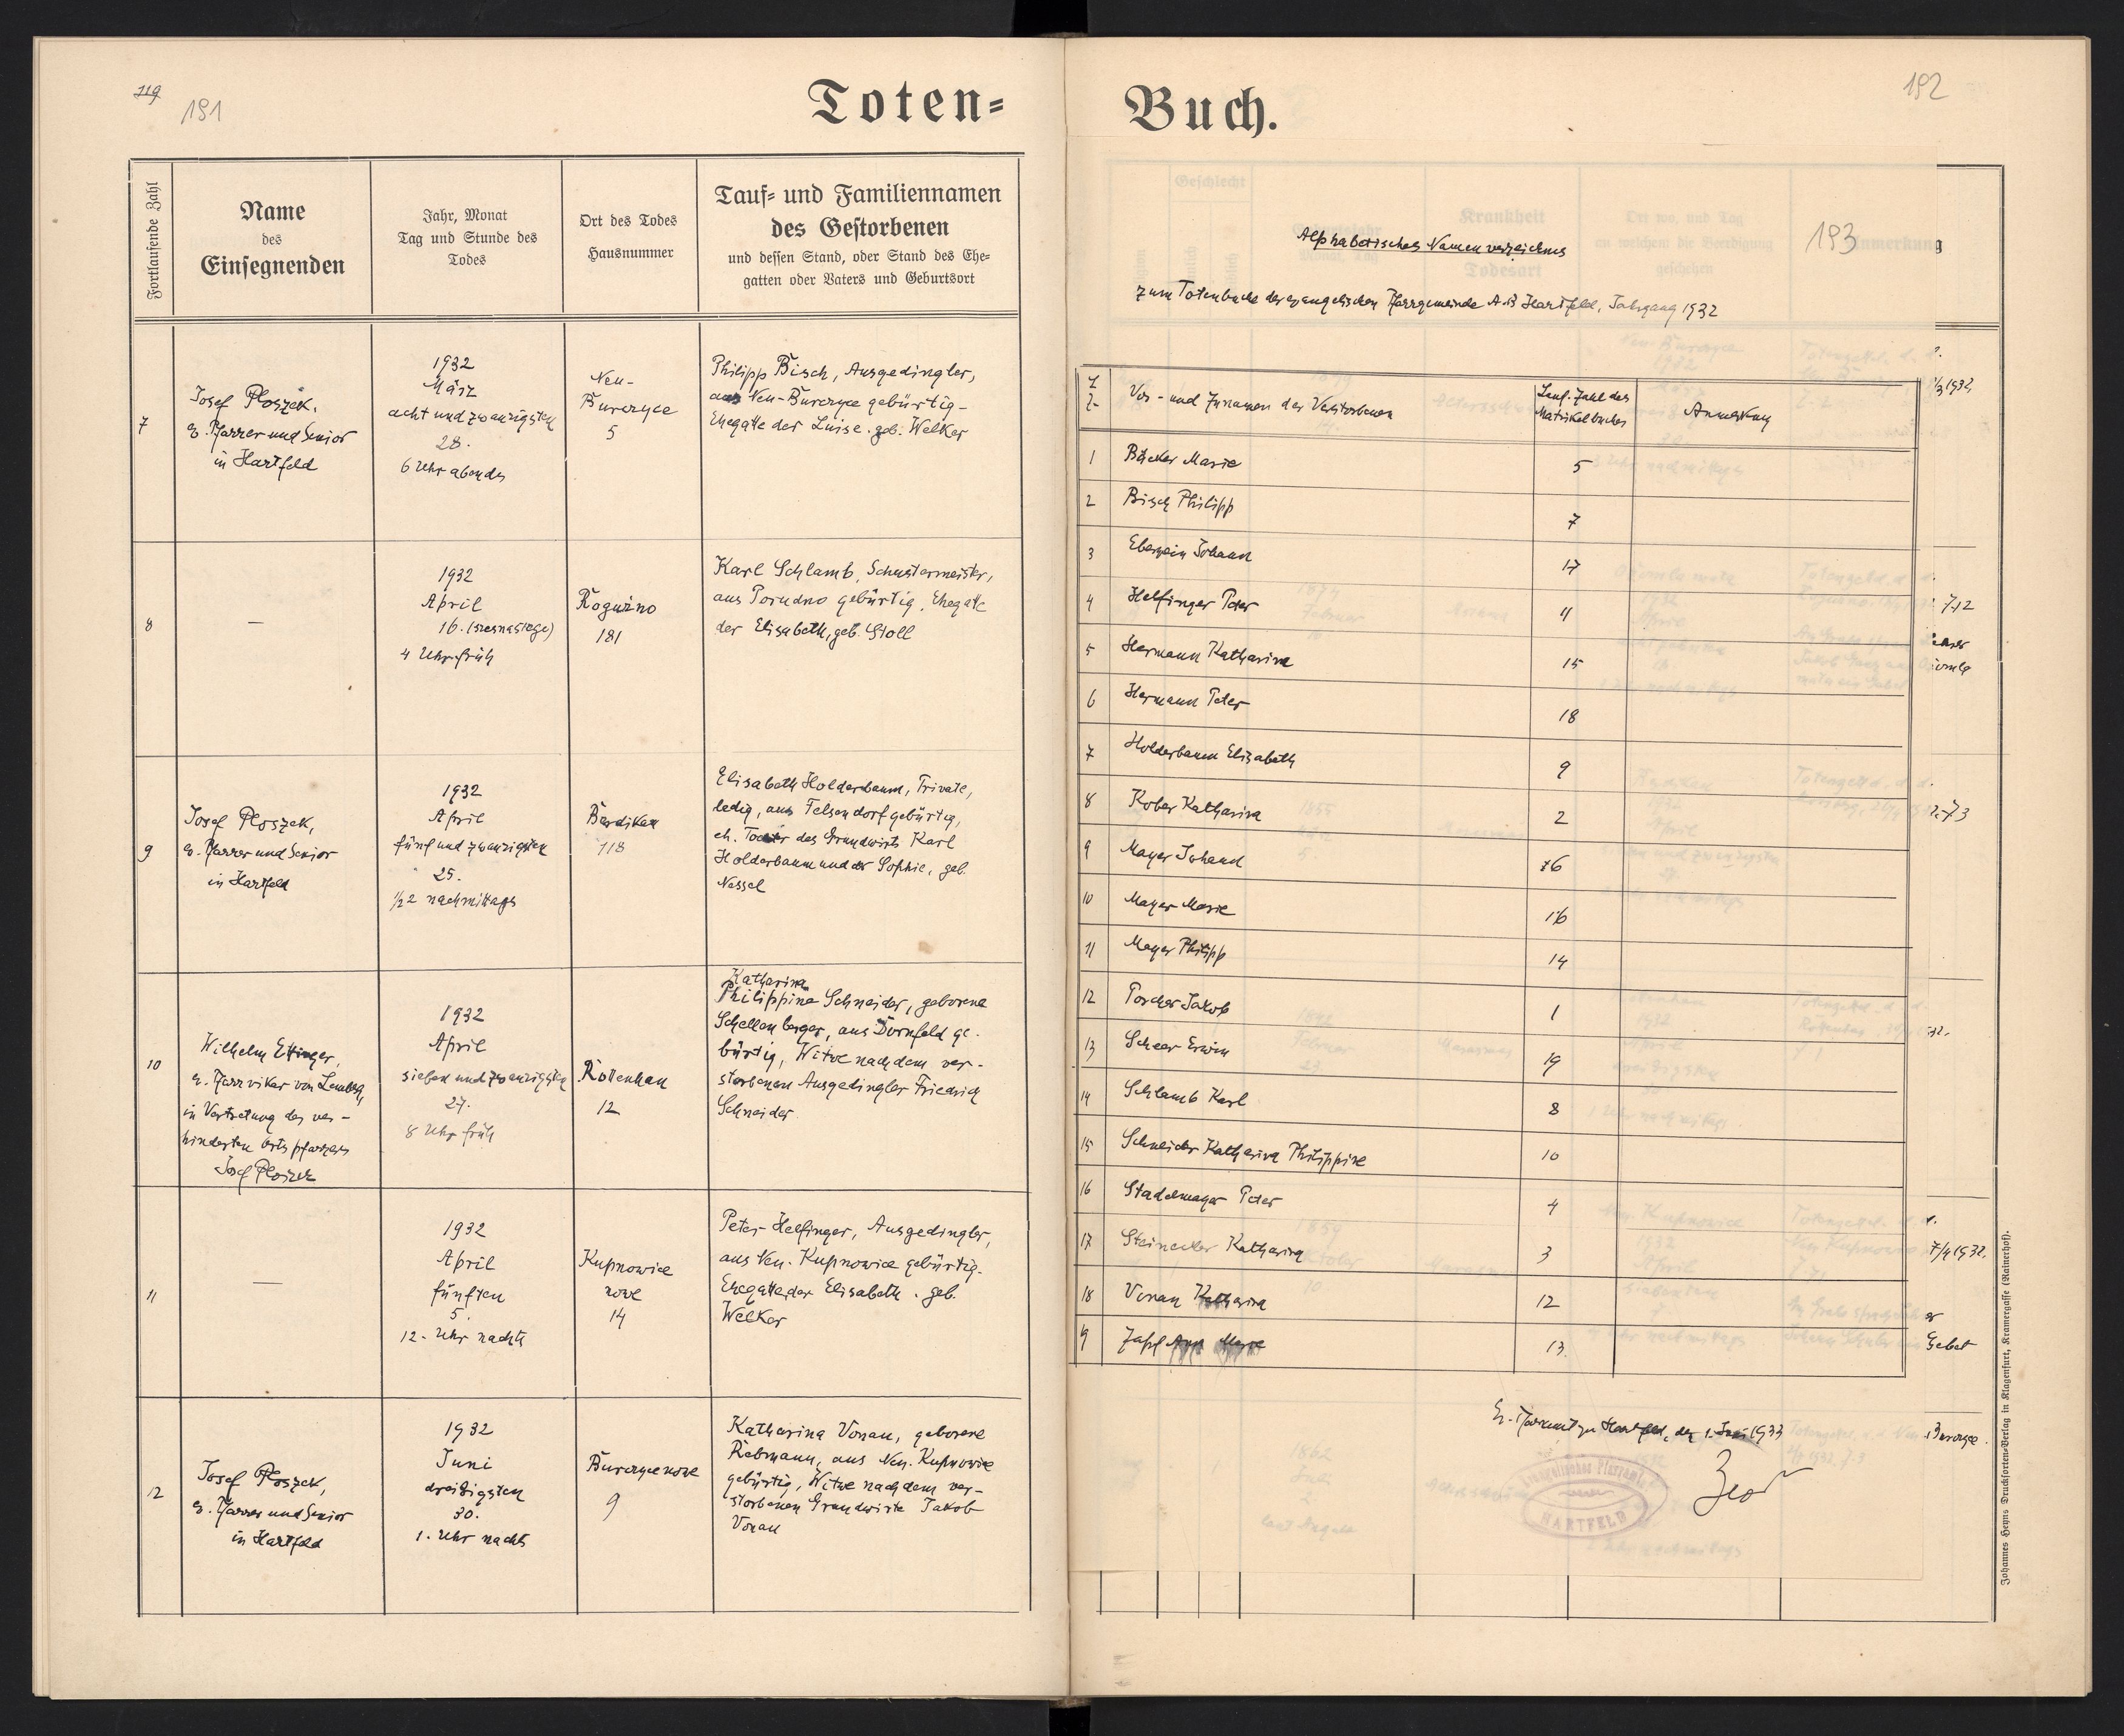 119
191
Toten=
Fortlaufende Zahl
Name
des
Einsegnenden
Jahr, Monat
Tag und Stunde des
Todes
Ort des Todes
Hausnummer
Tauf= und Familiennamen
des Gestorbenen
und dessen Stand, oder Stand des Ehe=
gatten oder Vaters und Geburtsort
7
Josef Ploszek,
ev. Pfarrer und Senior
in Hartfeld
1932
März
acht und zwanzigsten
28.
6 Uhr abends
Neu-
Burczyce
5
Philipp Bisch, Ausgedingler,
aus Neu-Burczyce gebürtig-
Ehegatte der Luise. geb. Welker
8
—
1932
April
16. (szesnastego)
4 Uhr früh
Rogużno
181
Karl Schlamb, Schustermeister,
aus Porudno gebürtig, Ehegatte
der Elisabeth, geb. Stoll
9
Josef Ploszek,
ev. Pfarrer und Senior
in Hartfeld
1932
April
fünf und zwanzigsten
25.
1/2 2 nachmittags
Burdikau
118
Elisabeth Holderbaum, Private,
ledig, aus Felsendorf gebürtig,
eh. Tochter des Grundwirts Karl
Holderbaum und der Sophie, geb.
Nessel
10
Wilhelm Ettinger,
ev. Pfarrvikar von Lemberg,
in Vertretung des ver-
hinderten Ortspfarrers
Josef Ploszek
1932
April
sieben und zwanzigsten
27.
8 Uhr früh
Rottenhan
12
Katharina
Philippine Schneider, geborene
Schellenberger, aus Dornfeld ge-
bürtig, Witwe nach dem ver-
storbenen Ausgedingler Friedrich
Schneider
11
—
1932
April
fünften
5.
12. Uhr nachts
Kupnowice
nowe
14
Peter Helfinger, Ausgedingler,
aus Neu-Kupnowice gebürtig.
Ehegatte der Elisabeth. geb.
Welker
12
Josef Ploszek,
ev. Pfarrer und Senior
in Hartfeld
1932
Juni
dreißigsten
30.
1. Uhr nachts
Burczyce nowe
9
Katharina Vonau, geborene
Rebmann, aus Neu-Kupnowice
gebürtig, Witwe nach dem ver-
storbenen Grundwirte Jakob
Vonau
Buch.
192
193
Alphabetisches Namenverzeichnis
zum Totenbuche der evangelischen Pfarrgemeinde A.B. Hartfeld, Jahrgang 1932
Vor- und Zunamen des Verstorbenen
Lauf. Zahl des
Matrikelbuches
Anmerkung
1 Bücker Marie 5
2 Bisch Philipp 7
3 Eberwein Johann 17
4 Helfinger Peter 11
5 Hermann Katharina 15
6 Hermann Peter 18
7 Holderbaum Elisabeth 9
8 Kober Katharina 2
9 Mayer Johann 6
10 Mayer Marie 16
11 Mayer Philipp 14
12 Porcher Jakob 1
13 Scheer Erwin 19
14 Schlamb Karl 8
15 Schneider Katharina Philippine 10
16 Stadelmayer Peter 4
17 Steinecker Katharina 3
18 Vonau Katharina 12
19 Marie 13.
Ev. Pfarramt zu Hartfeld, den 1. 1933
HARTFELD
Gebet
Johannes Heyns Drucksorten=Verlag in Klagenfurt, Kramergasse (Rainerhof).